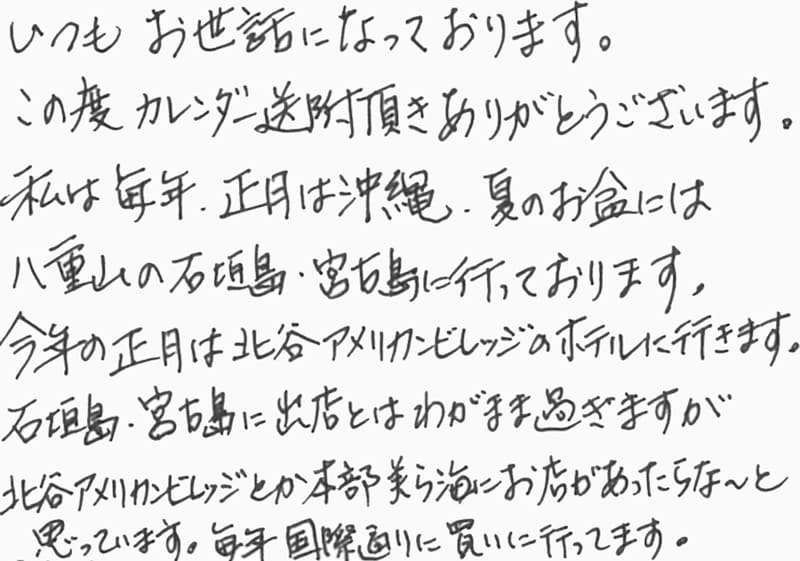 いつも お世話になっております。
この度 カレンダー送附頂きありがとうございます。
私は 毎年、正月は沖縄、夏のお盆には
八重山の石垣島・宮古島に行っております。
今年の正月は北谷アメリカンビレッジのホテルに行きます。
石垣島・宮古島に出店とはわがまま過ぎますが
北谷アメリカンビレッジとか本部美ら海にお店があったらな〜と
思っています。毎年国際通りに買いに行ってます。